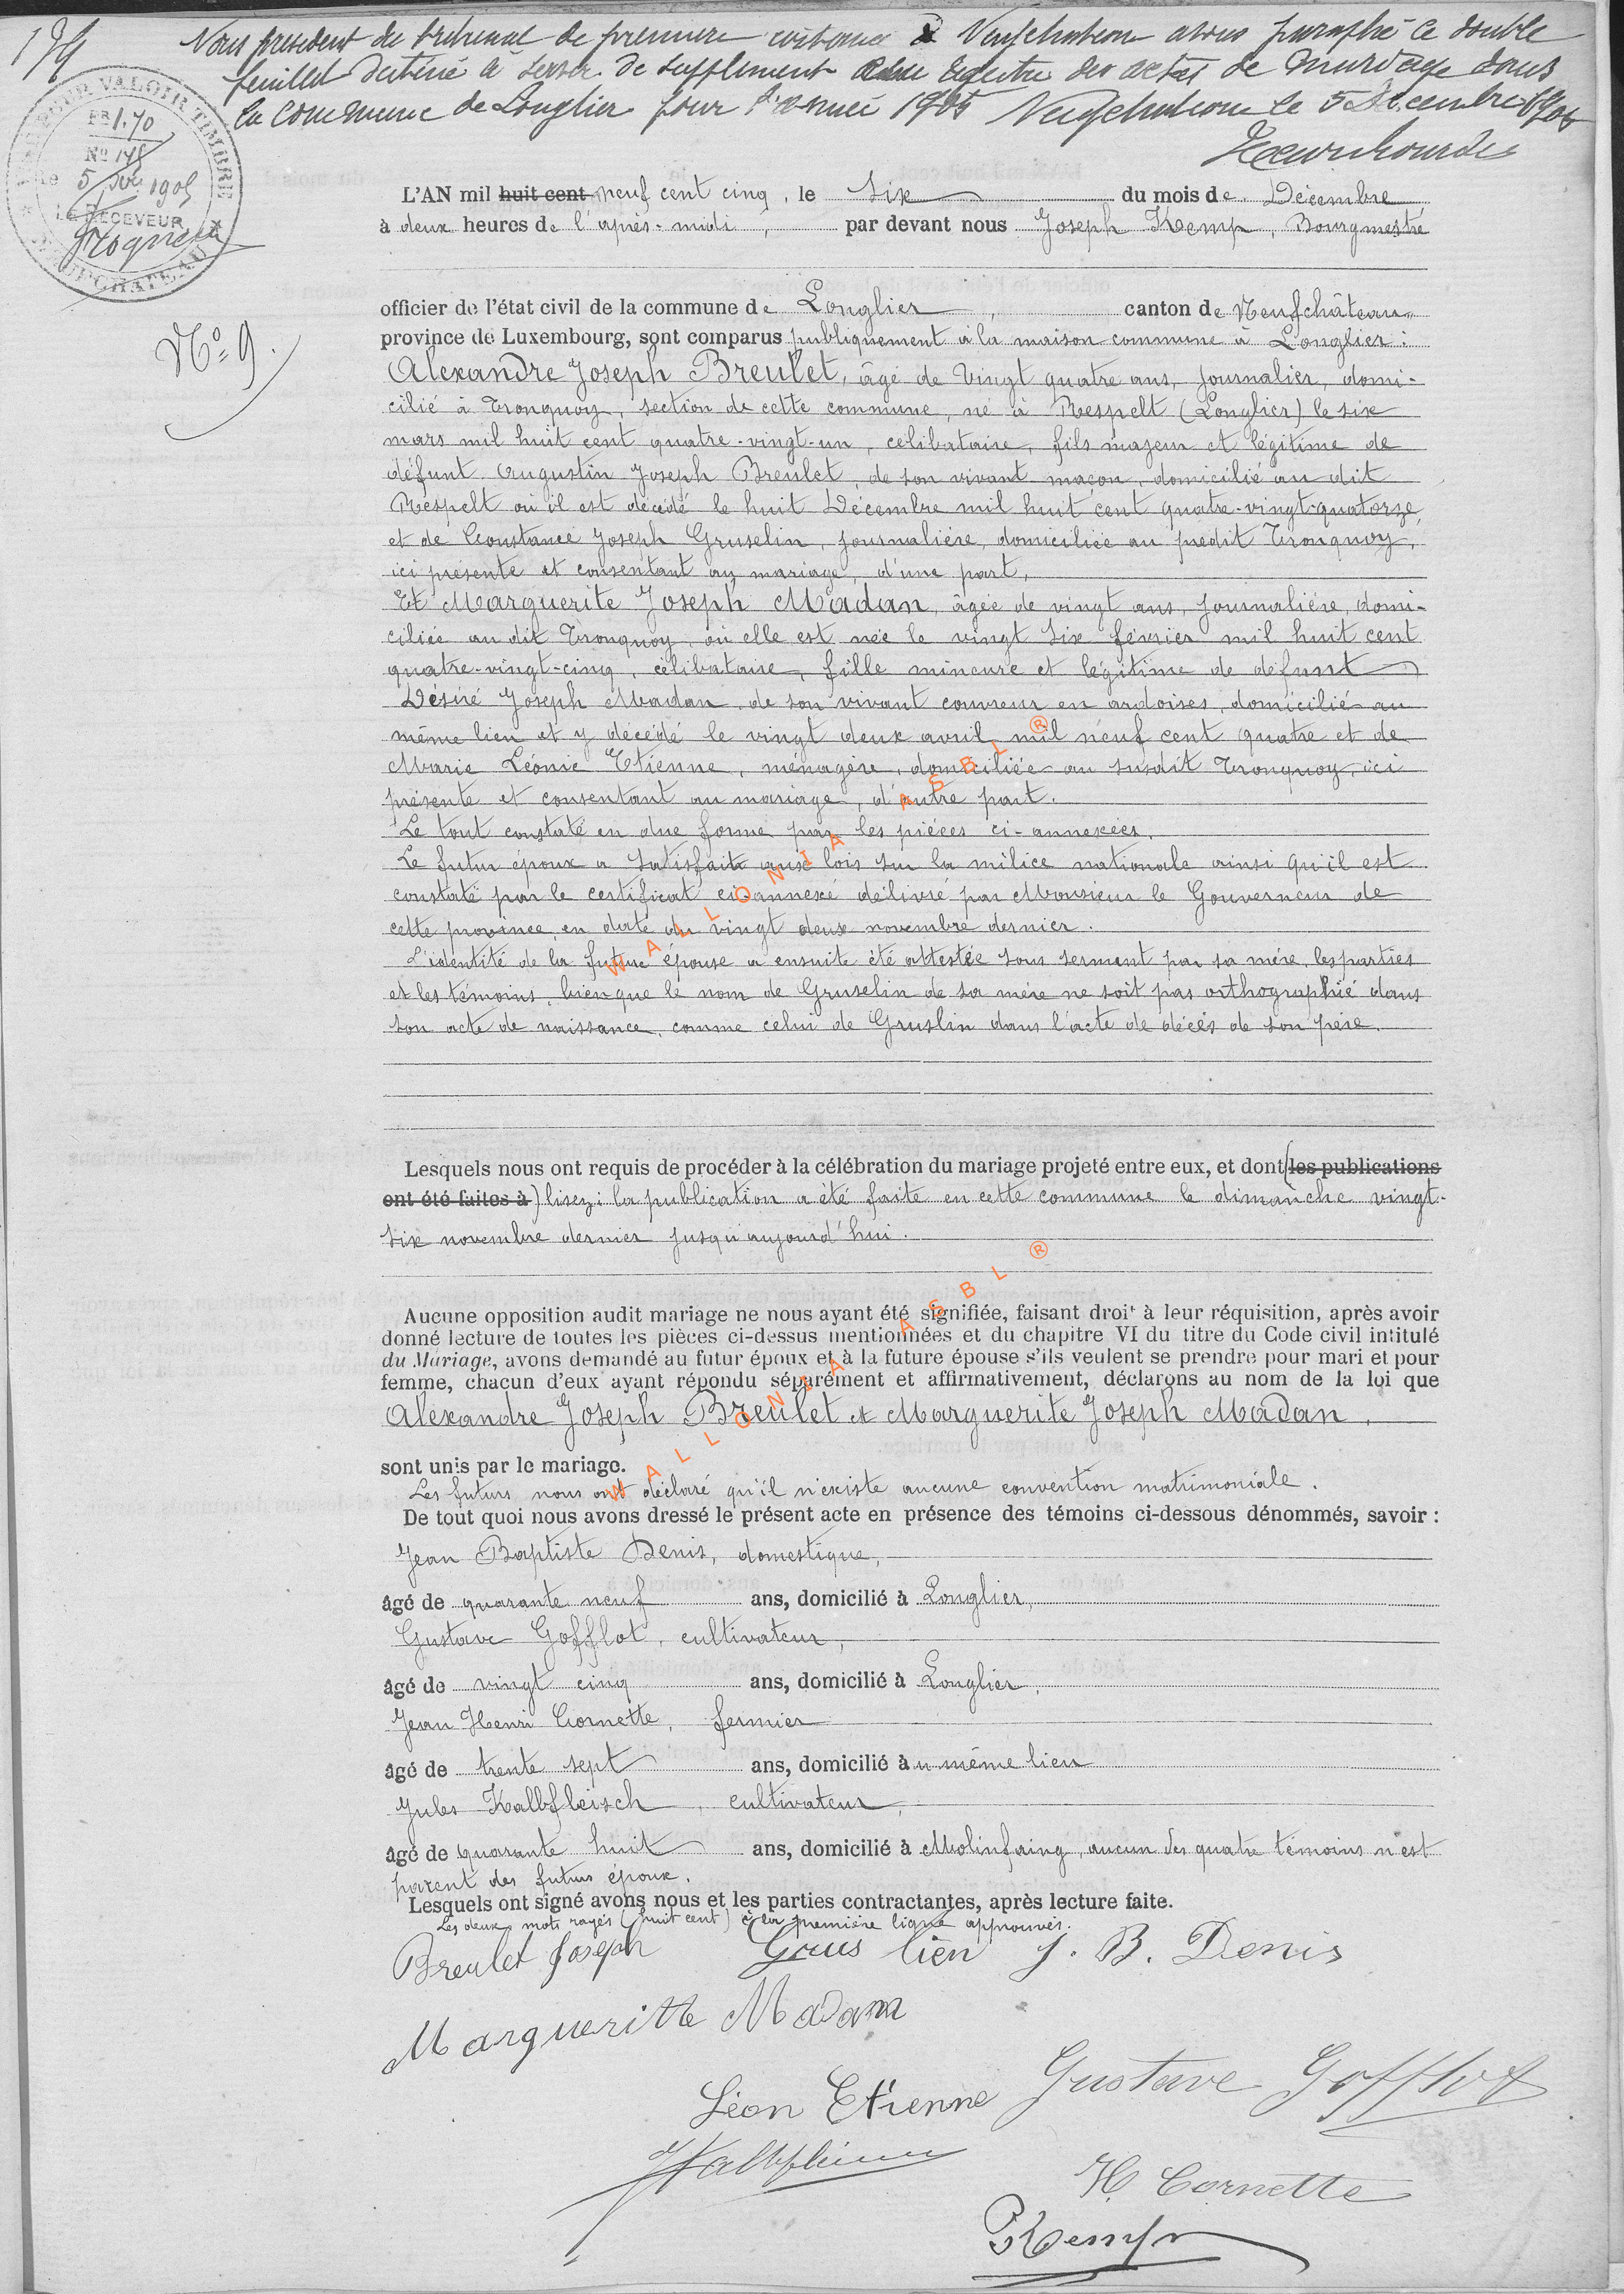 Nous président du tribunal de première instance à Neufchateau avons paraphé ce double
feuillet destiné à servir de supplément au registre des actes de mariage dans
la commune de Longlier pour l'année 1905 Neufchateau le 5 Décembre 1905
VALOIR TIMBRE
FR 1.70
No 148
le 5 Déc 1905
LE RECEVEUR
NEUFCHATEAU
No 9.
L'AN mil huit cent neuf cent cinq, le six du mois de Décembre
à deux heures de l'après-midi, par devant nous Joseph Kemp, Bourgmestre
officier de l'état civil de la commune de Longlier, canton de Neufchâteau,
province de Luxembourg, sont comparus publiquement à la maison commune à Longlier :
Alexandre Joseph Breulet, âgé de vingt quatre ans, journalier, domi-
cilié à Tronquoy, section de cette commune, né à Respelt (Longlier) le six
mars mil huit cent quatre-vingt-un, célibataire, fils majeur et légitime de
défunt Augustin Joseph Breulet, de son vivant maçon, domicilié au dit
Respelt où il est décédé le huit Décembre mil huit cent quatre-vingt-quatorze,
et de Constance Joseph Gruselin, journalière, domiciliée au prédit Tronquoy,
ici présente et consentant au mariage, d'une part,
Et Marguerite Joseph Madan, âgée de vingt ans, journalière, domi-
ciliée au dit Tronquoy, où elle est née le vingt six février mil huit cent
quatre-vingt-cinq, célibataire, fille mineure et légitime de défunt
Désiré Joseph Madan de son vivant couvreur en ardoises, domicilié au
même lieu et y décédé le vingt deux avril mil neuf cent quatre et de
Marie Léonie Etienne, ménagère, domiciliée au susdit Tronquoy, ici
présente et consentant au mariage, d'autre part.
Le tout constaté en due forme par les pièces ci-annexées.
Le futur époux a satisfait aux lois sur la milice nationale ainsi qu'il est
constaté par le certificat ci-annexé délivré par Monsieur le Gouverneur de
cette province, en date du vingt deux novembre dernier.
L'identité de la future épouse a ensuite été attestée sous serment par sa mère, les parties
et les témoins, bien que le nom de Gruselin de sa mère ne soit pas orthographié dans
son acte de naissance, comme celui de Gruslin dans l'acte de décès de son père.
WALLONIA ASBL ®
Lesquels nous ont requis de procéder à la célébration du mariage projeté entre eux, et dont (les publications
ont été faites à) lisez : la publication a été faite en cette commune le dimanche vingt-
six novembre dernier jusqu'aujourd'hui.
Aucune opposition audit mariage ne nous ayant été signifiée, faisant droit à leur réquisition, après avoir
donné lecture de toutes les pièces ci-dessus mentionnées et du chapitre VI du titre du Code civil intitulé
du Mariage, avons demandé au futur époux et à la future épouse s'ils veulent se prendre pour mari et pour
femme, chacun d'eux ayant répondu séparément et affirmativement, déclarons au nom de la loi que
Alexandre Joseph Breulet et Marguerite Joseph Madan,
sont unis par le mariage.
WALLONIA ASBL ®
Les futurs nous ont déclaré qu'il n'existe aucune convention matrimoniale.
De tout quoi nous avons dressé le présent acte en présence des témoins ci-dessous dénommés, savoir :
Jean Baptiste Denis, domestique,
âgé de quarante neuf ans, domicilié à Longlier,
Gustave Gofflot, cultivateur,
âgé de vingt cinq ans, domicilié à Longlier,
Jean Henri Cornette, fermier
âgé de trente sept ans, domicilié au même lieu
Jules Kalbfleisch, cultivateur,
âgé de quarante huit ans, domicilié à Molinfaing, aucun des quatre témoins n'est
parent des futurs époux.
Lesquels ont signé avons nous et les parties contractantes, après lecture faite.
Les deux mots rayés (huit cent) à la première ligne approuvés.
Breulet Joseph Grus lien J. B. Denis
Margueritte Madam
Léon Etienne Gustave Gofflot
H Cornette
Kemp